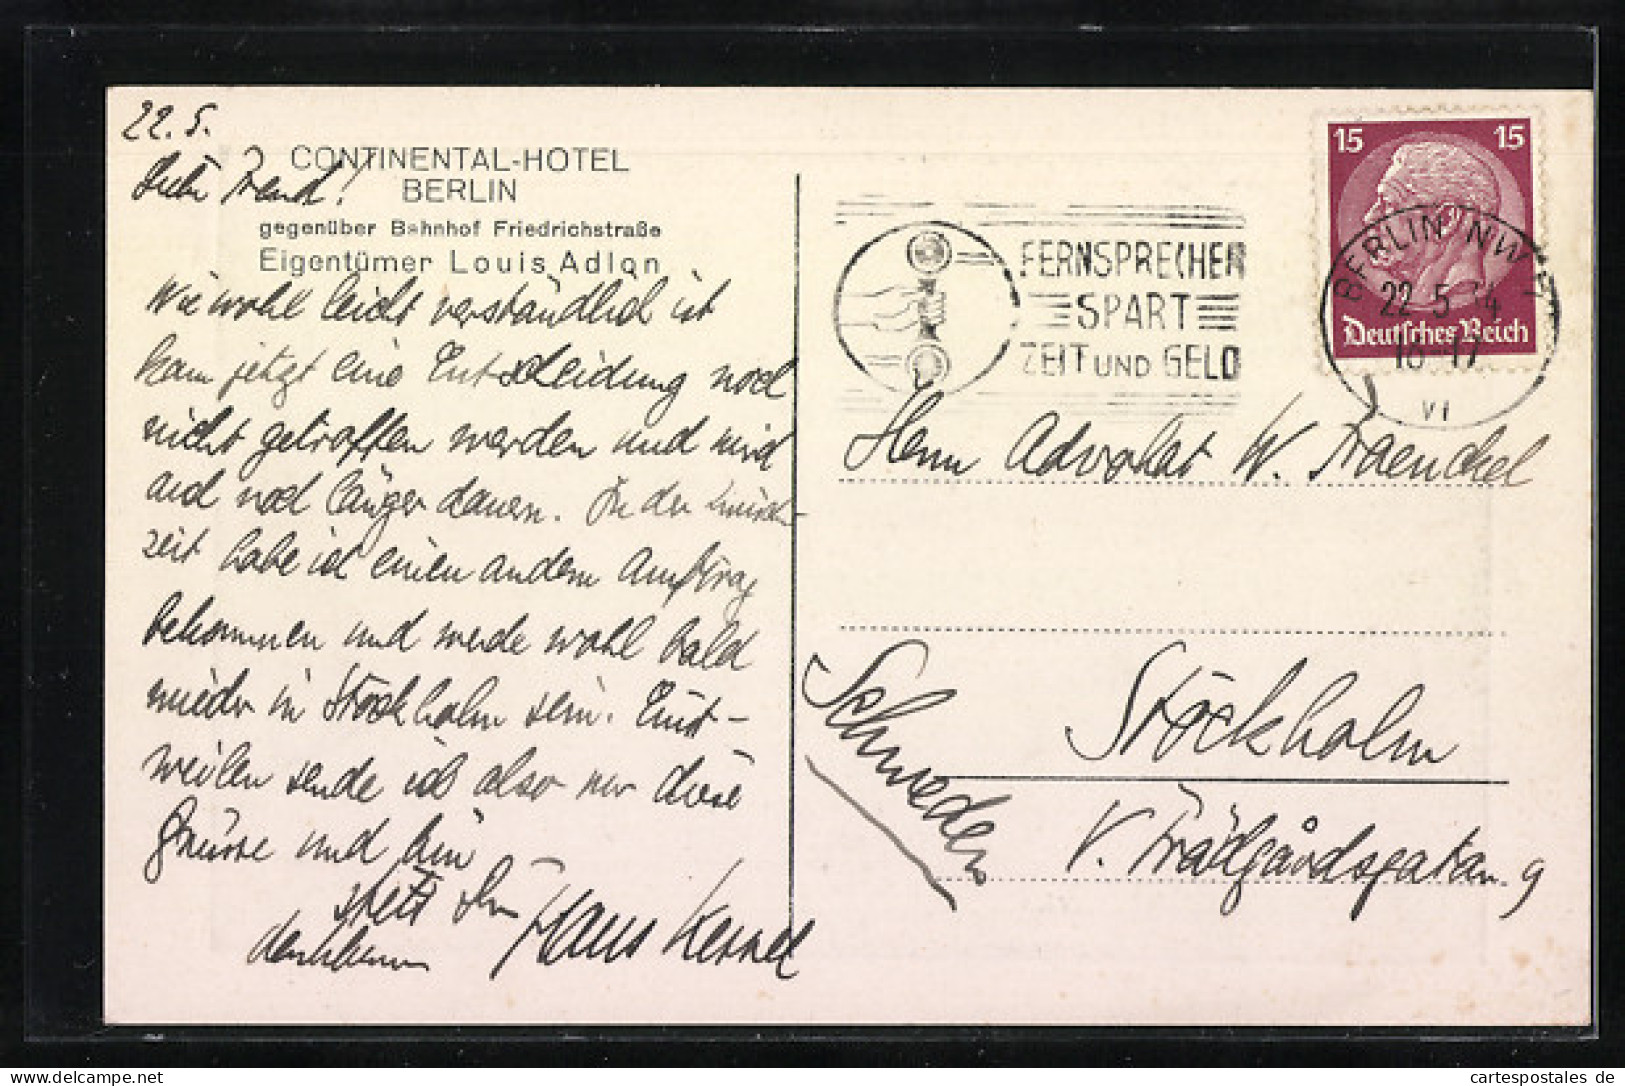 22. 5.
CONTINENTAL-HOTEL
BERLIN
Freund!
gegenüber Bahnhof Friedrichstraße
Eigentümer Louis Adlon
Wie wohl leicht verständlich ist
kann jetzt eine Entscheidung noch
nicht getroffen werden und wird
auch noch länger dauern. In der Zwischen-
zeit habe ich einen andern Auftrag
bekommen und werde wohl bald
wieder in Stockholm sein. Einst-
weilen sende ich also nur diese
Grüsse und bin
stets Ihr
dankbarer Hans
FERNSPRECHER
SPART
ZEIT UND GELD
15 15
Deutsches Reich
BERLIN NW
22.5.34
16-17
Herrn Advokat W. Fraenckel
Stockholm
Schweden
V. Trädgårdsgatan 9
www.delcampe.net
cartespostales de